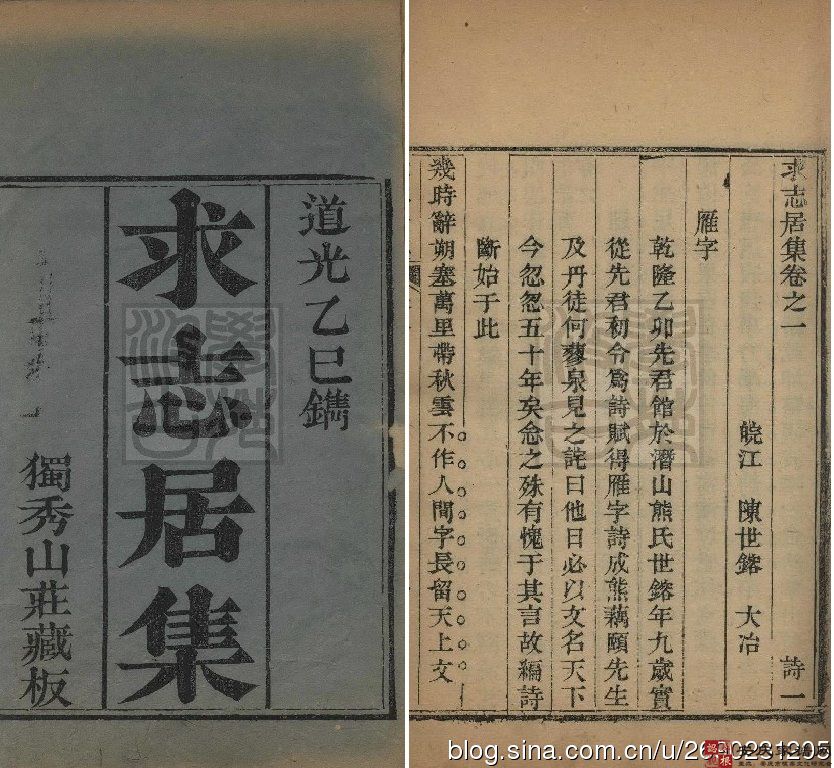 道光乙巳鐫
求志居集
獨秀山莊藏板
求志居集卷之一 詩一
皖江 陳世鎔 大冶
雁字
乾隆乙卯先君館於潛山熊氏世鎔年九歲實
從先君初令爲詩賦得雁字詩成熊藕頤先生
及丹徒何蓼泉見之詫曰他日必以文名天下
今忽忽五十年矣念之殊有愧于其言故編詩
斷始于此
幾時辭朔塞萬里帶秋雲不作人間字長留天上文
blog.sina.com.cn/u/2640291905